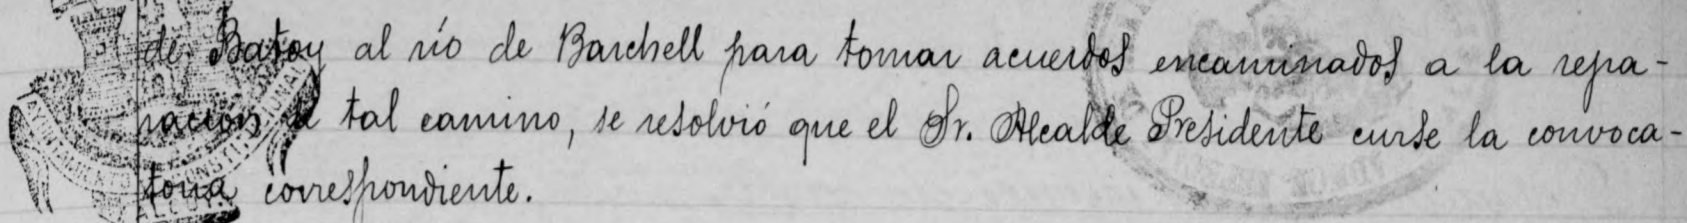 de Batoy al río de Barchell para tomar acuerdos encaminados a la repa-
ración de tal camino, se resolvió que el Sr. Alcalde Presidente curse la convoca-
toria correspondiente.